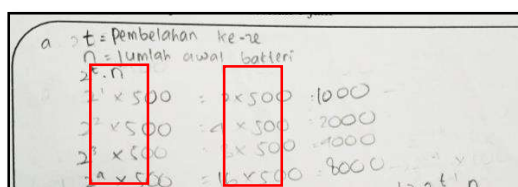 a t = Pembelahan ke-
n = Jumlah awal bakteri
2ᵗ.n
2¹ × 500 = 2 × 500 = 1000
2² × 500 = 4 × 500 = 2000
2³ × 500 = 8 × 500 = 4000
× 500 = 16 × 500 = 8000